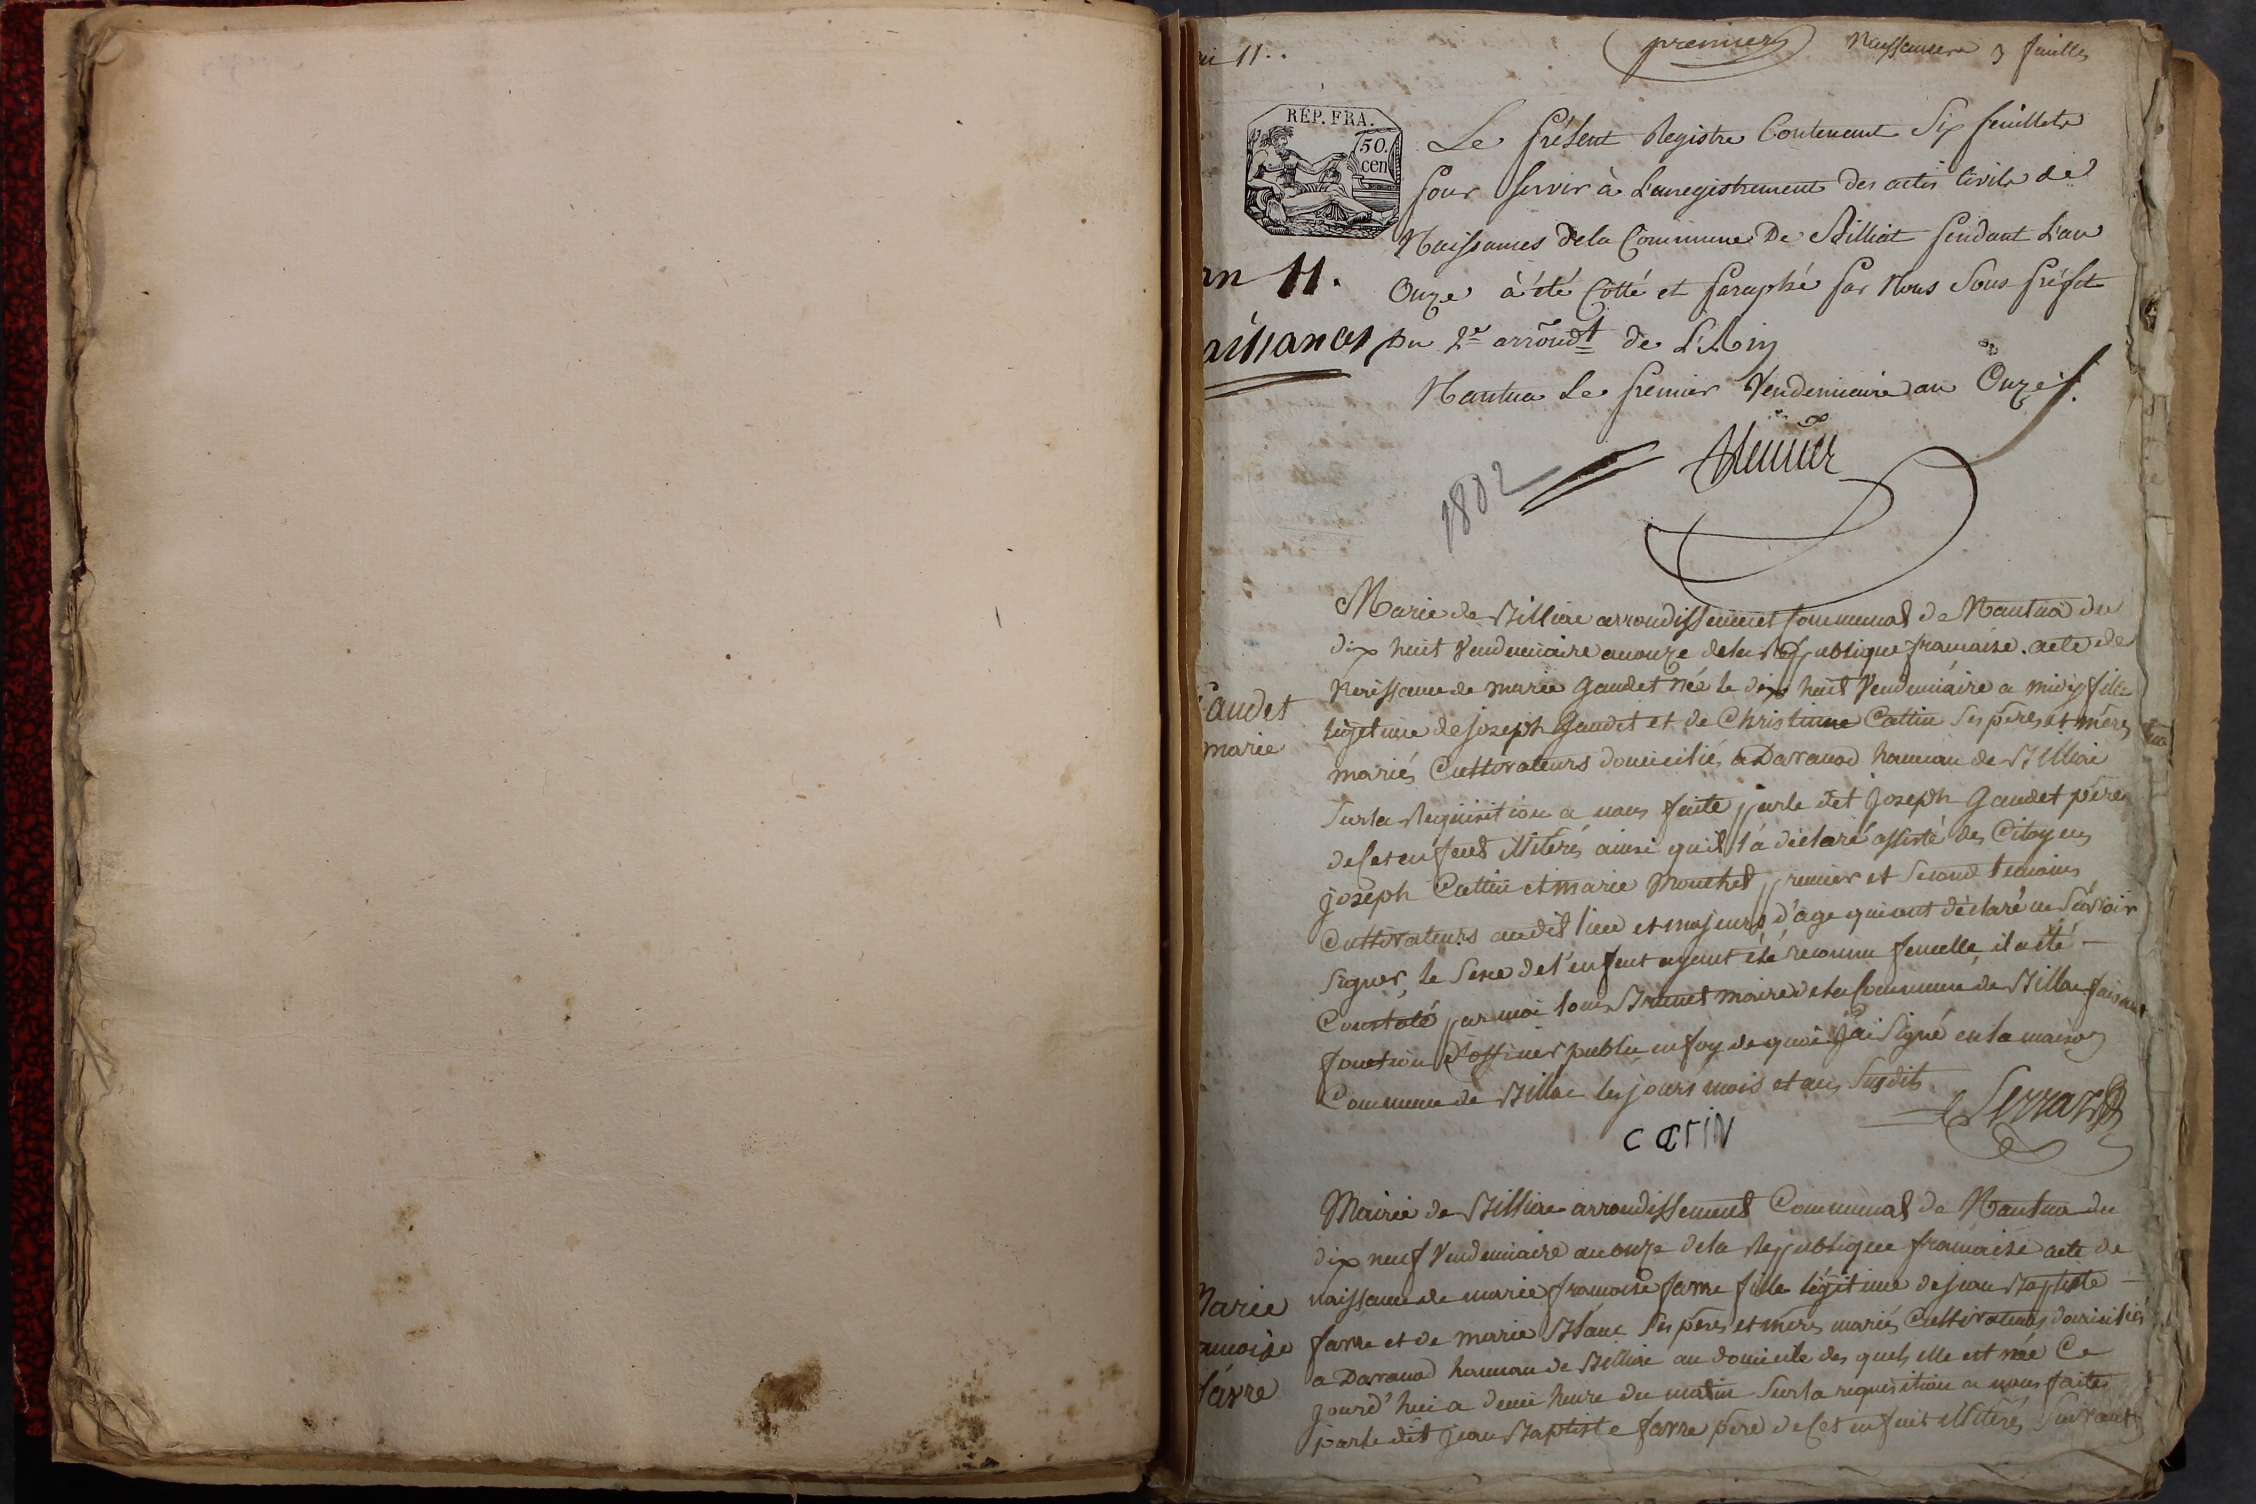 11..
premier
Naissances 3 feuilles
REP. FRA.
50.
cen
Le présent Registre Contenant Six feuillets
pour servir à L'enregistrement des actes Civils de
Naissances dela Commune De Billiat pendant L'an
an 11.
Onze à été Cotté et paraphé par Nous Sous préfet
aissances
Du 2e arrond.t de L'Ain
Nantua Le premier Vendemiaire an Onze
1802
Marie de Billiac arrondissement Communal de Nantua du
dix huit Vendemiaire an onze dela Republique francaise. acte de
Naissance de marie Gaudet née le dix huit Vendemiaire a midy fille
Gaudet
marie
legitime de Joseph Gaudet et de Christinne Cattin ses pères et mères
mariés Cultivateurs domiciliés a Davanod hameau de Billiac
sur la Requisition a nous faite par le dit Joseph Gaudet père
de Cet enfent illiterés ainsi qu'il l'a déclaré assisté des Citoyens
Joseph Cattin et marie Mouthet premier et second temoins
Cultivateurs audit lieu et majeurs d'age qui ont déclaré ne Scavoir
Signer, le Sexe de l'enfent ayant été reconnu femelle, il a été
Constaté par moi louis Brunet maire de la Commune de Billiac faisant
fonction d'officier public en foy de quoi J'ai Signé en la maison
Commune de Billiac les jours mois et an Susdits
CATTIN
Mairie de Billiac arrondissement Communal de Nantua du
dix neuf Vendemiaire an onze dela Republique francaise acte de
naissance de marie francoise favre fille légitime de jean Baptiste
Marie
favre et de marie Blanc Ses pères et mères mariés Cultivateurs domiciliés
ancoise
a Davanod hameau de Billiac au domicile des quels elle est née Ce
favre
jourd'hui a demi heure du matin Sur la requisition a nous faite
par le dit jean Baptiste favre père de Cet enfent illiterés Suivant